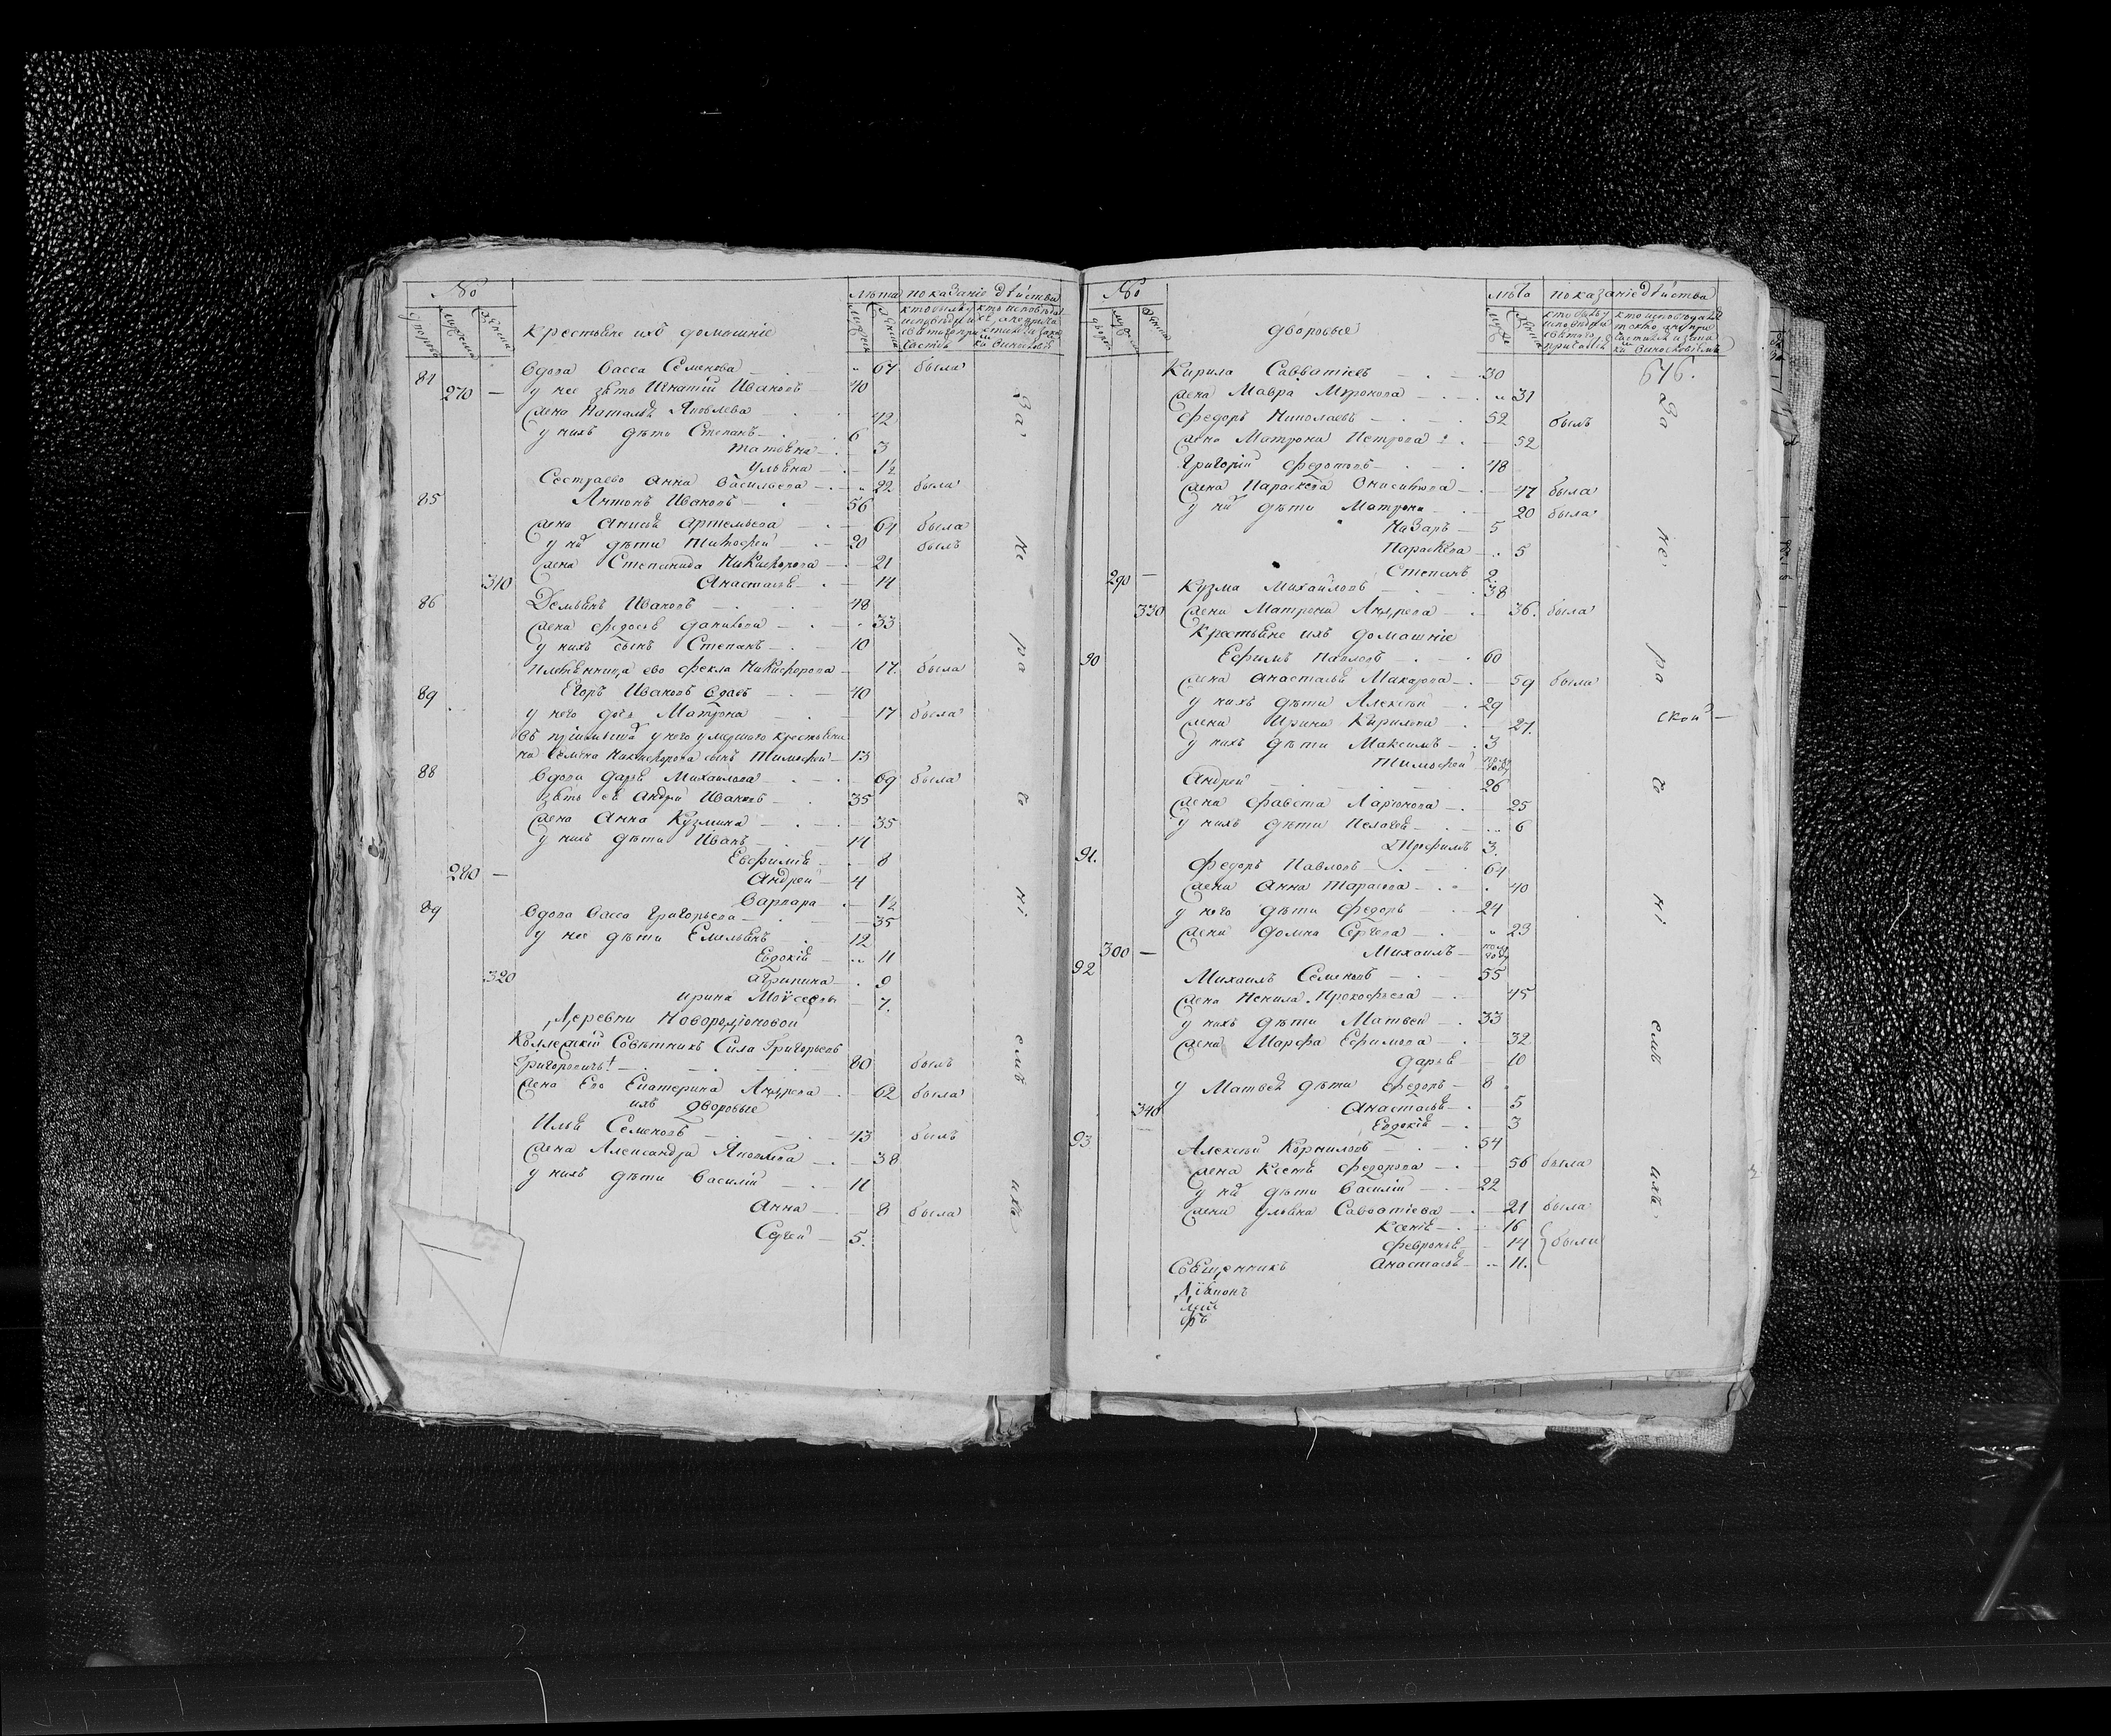 №
лѣта показаніе дѣйства
дворовъ мужеска женска
крестьяне ихъ домашніе
вдова Васса Семенова 67 была
84
270 у нее зять Игнатій Ивановъ 40
жена Наталья Яковлева 42
у нихъ дѣти Степанъ 6
Татьяна 3
Ульяна 1½
Сестраево Анна Васильева 22 была
85 Антонъ Ивановъ 56
жена Анисья Артемьева 64 была
у нй дѣти Тимофей 20 былъ
жена Степанида Никифорова 21
310 Анастасья 14
86 Демьянъ Ивановъ 48
жена Федосья Данилова 33
у нихъ сынъ Степанъ 10
племянница ево Фекла Никифорова 17 была
Егоръ Ивановъ вдовъ 40
у него дочь Матрона 17 была
умершаго крестьяни
на Семена Никифорова сынъ Тимофей 13
88 вдова Дарья Михайлова 69 была
зять ея Андрей Ивановъ 35
жена Анна Кузмина 35
у нихъ дѣти Иванъ 14
Евфимія 8
280 Андрей 4
Варвара 1½
89 вдова Васса Григорьева 35
у нее дѣти Емельянъ 12
Евдокія 11
320 Агрипина 9
Ирина Моѵсеева 7.
Деревни Новородіоновой
Коллежскій Совѣтникъ Сила Григорьевъ
Григоровичъ 80 былъ
жена Его Екатерина Андреева 62 была
ихъ дворовые
Илья Семеновъ 43 былъ
жена Александра Яковлева 38
у нихъ дѣти Василій 11
Анна 8 была
Сергей 5.
За не ра че ні емъ ихъ
№
лѣта показаніе дѣйства
дворовъ мужеска женска
дворовые
676.
Кирила Савватіевъ 30
жена Мавра Миронова 31
Федоръ Николаевъ 52 былъ
жена Матрона Петрова 52
Григорій Федотовъ 48
жена Параскева Онисимова 47 была
у нй дѣти Матрона 20 была
Назаръ 5
Параскева 5
Степанъ 2
290 Кузма Михайловъ 38
330 жена Матрона Андреева 36. была
Крестьяне ихъ домашніе
90 Ефимъ Павловъ 60
жена Анастасья Макарова 59 была
у нихъ дѣти Алексѣй 29
жена Ирина Кирилова 27.
у нихъ дѣти Максимъ 3
Тимофей
Андрей 26
жена Фавста Ларіонова 25
у нихъ дѣти Пелагея 6
Трофимъ 3.
91. Федоръ Павловъ 64
жена Анна Тарасова 40
у него дѣти Федоръ 24
жена Домна Сергеева 23
300 Михаилъ полугоду
92 Михаилъ Семеновъ 55
жена Ненила Прокофьева 45
у нихъ дѣти Матвей 33
жена Марфа Ефимова 32
Дарья 10
у Матвея дѣти Федоръ 8
340 Анастасья 5
Евдокія 3
93 Алексѣй Корниловъ 54
жена Ксенія Федорова 56 была
у нй дѣти Василій 22
жена Ульяна Савватіева 21 была
Ксенія 16
Февронья 14 были
Анастасья 11.
Священникъ
За не ра че ні емъ ихъ